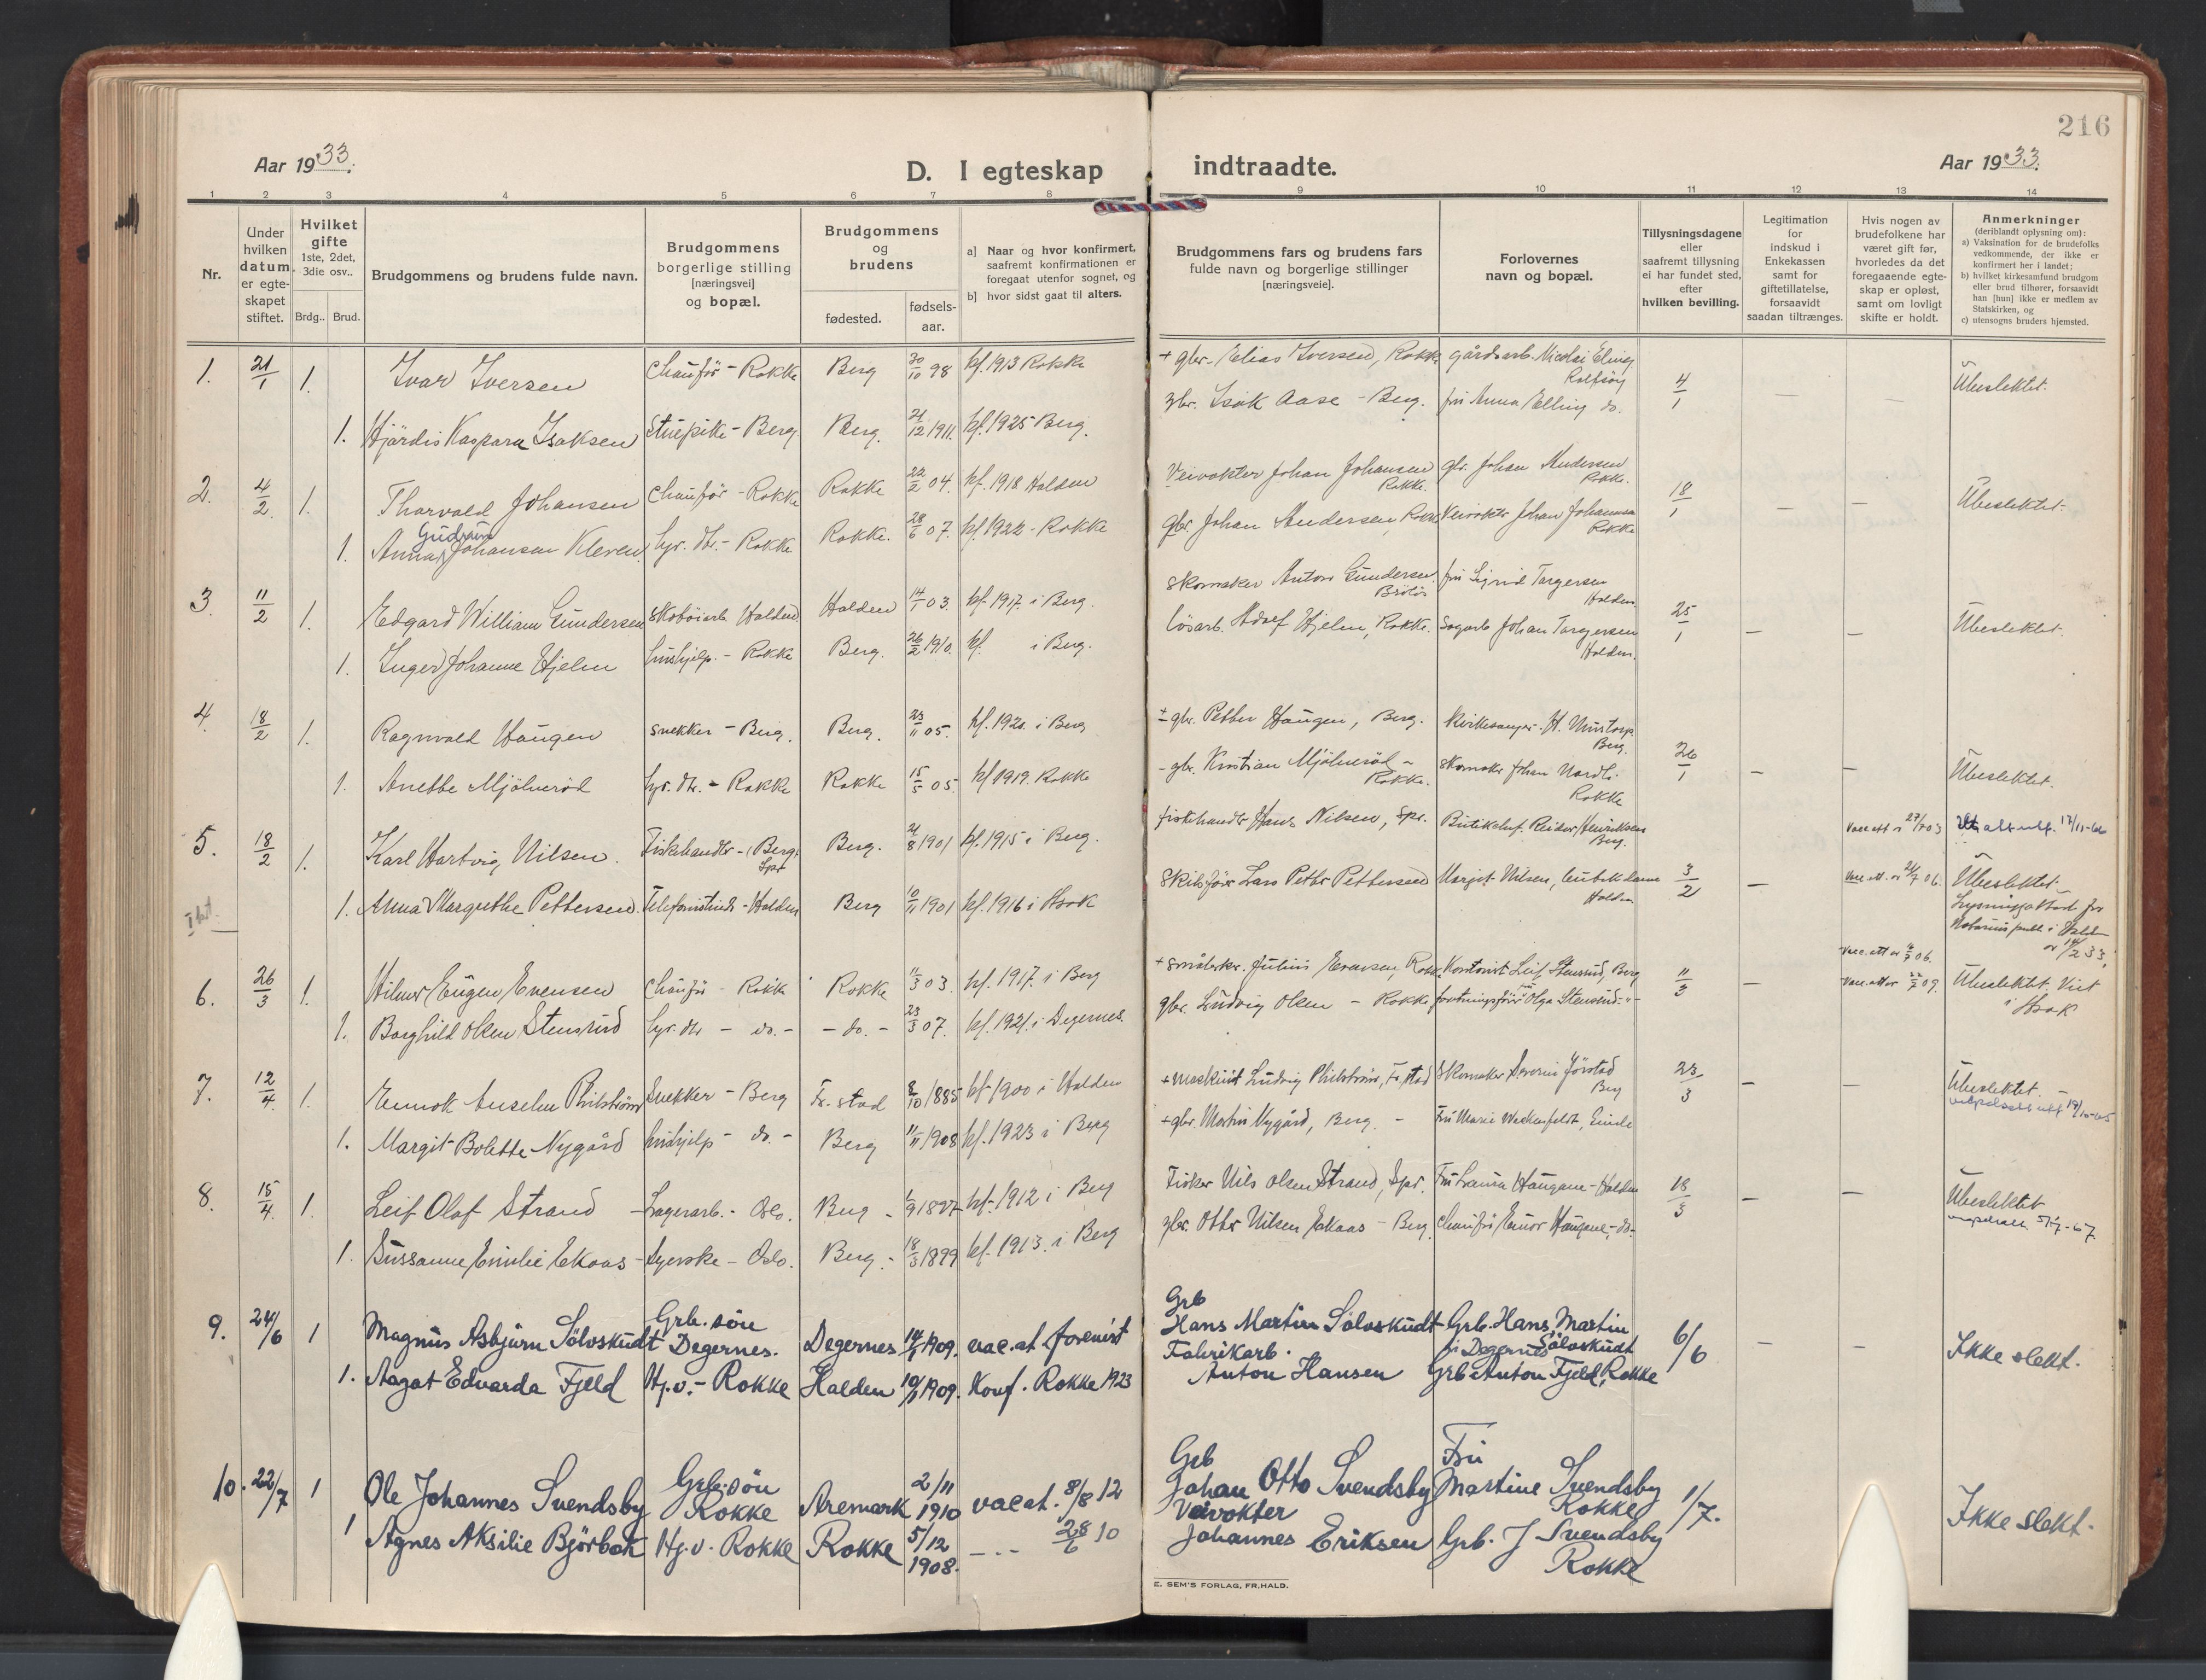 216
Aar 1933.
D. I egteskap indtraadte.
Aar 1933.
1 2 3 4 5 6 7 8 9 10 11 12 13 14
Nr.
Under hvilken datum er egteskapet stiftet.
Hvilket gifte 1ste, 2det, 3die osv..
Brdg.. Brud.
Brudgommens og brudens fulde navn.
Brudgommens borgerlige stilling [næringsvei] og bopæl.
Brudgommens og brudens
fødested.
fødsels-aar.
a] Naar og hvor konfirmert, saafremt konfirmationen er foregaat utenfor sognet, og
b] hvor sidst gaat til alters.
Brudgommens fars og brudens fars fulde navn og borgerlige stillinger [næringsveie].
Forlovernes navn og bopæl.
Tillysningsdagene eller saafremt tillysning ei har fundet sted, efter hvilken bevilling.
Legitimation for indskud i Enkekassen samt for giftetillatelse, forsaavidt saadan tiltrænges.
Hvis nogen av brudefolkene har været gift før, hvorledes da det foregaaende egteskap er opløst, samt om lovligt skifte er holdt.
Anmerkninger (deriblandt oplysning om):
a) Vaksination for de brudefolks vedkommende, der ikke er konfirmert her i landet;
b) hvilket kirkesamfund brudgom eller brud tilhører, forsaavidt han [hun] ikke er medlem av Statskirken, og
c) utensogns bruders hjemsted.
1. 21/1 1. Ivar Iversen chauför - Rokke Berg 30/10 98 kf. 1913 Rokke + gbr. Elias Iversen, Rokke gårdsarb. Nicolai Elling Rolfsöy 4/1 — — Ubeslektet.
1. Hjördis Kaspara Isaksen Stuepike - Berg Berg. 21/12 1911. kf. 1925 Berg. gbr. Isak Aase - Berg. fru Anna Elling do.
2. 4/2. 1. Thorvald Johansen chauför - Rokke Rokke 22/2 04. kf. 1918 Halden Veivokter Johan Johansen Rokke. gbr. Johan Andersen Rokke. 18/1 — — Ubeslektet.
1. Anna Gudrun Johansen Kleven hjv. dtr. - Rokke Rokke. 28/6 07. kf. 1922 - Rokke gbr. Johan Andersen, Rokke Veivokter Johan Johansen Rokke
3. 11/2 1. Edgard William Gundersen Skotöiarb. Halden Halden 14/1 03. kf. 1917. i Berg. Skomaker Anton Gundersen. fru Sigrid Torgersen Halden. 25/1 — — Ubeslektet.
1. Inger Johanne Hjelm hushjelp. - Rokke Berg. 26/2 1910. kf. i Berg. lösarb. Adolf Hjelm, Rokke. Sagarb Johan Torgersen Halden.
4. 18/2 1. Ragnvald Haugen snekker - Berg. Berg. 23/11 05. kf. 1920. i Berg gbr. Petter Haugen, Berg. Kirkesanger H. Berg. 26/1 — — Ubeslektet.
1. Anette Mjölneröd hjv. dtr. - Rokke Rokke 15/5 05. kf 1919. Rokke gbr. Kristian Mjölneröd - Rokke. Skomaker Johan Nordli. Rokke
5. 18/2 1. Karl Hartvig Nilsen. Fiskehandler - Berg. Spr Berg. 21/8 1901 kf. 1915 i Berg. fiskehandler Hans Nilsen, Spr. Reidar Henriksen Berg. 3/2 — Vacc. att. 27/7 03 17/11-66
1. Anna Margrethe Pettersen. Telefonistinde - Halden Berg 10/11 1901 kf. 1916 i Asak Skibsförer Lars Petter Pettersen Margit Nilsen, Halden Vacc. att. 06. Ubeslektet.
Lysningsattest fra Notarius publ i Halden av 14/2 33.
6. 26/3 1. Hilmar Eugen Evensen chauför - Rokke Rokke 11/3 03. kf. 1917. i Berg + Julius Evensen, Rokke Kontorist Leif Stensrud, Berg 11/3 — Vacc. att. 06. Ubeslektet. Viet i Asak
1. Borghild Olsen Stensrud hjv. dtr - do. - - do. - 23/3 07. kf. 1921. i Degernes. gbr. Ludvig Olsen - Rokke Olga Stensrud - " - Vacc. att. 09.
7. 12/4. 1. Ennok Anselm Philström Snekker - Berg Fr. stad 8/10 1885 kf. 1900 i Halden + Maskinist Ludvig Philström, Fr. stad Skomaker Severin Jörstad Berg 23/3 — — Ubeslektet.
1. Margit Bolette Nygård hushjelp - do. - Berg 11/11 1908 kf. 1923 i Berg + gbr. Martin Nygård, Berg. - Fru Marie
8. 15/4. 1. Leif Olaf Strand Lagerarb. - Oslo. Berg - 1/9 1897 kf. 1912 i Berg Fisker Nils Olsen Strand, Spr. Fru Laura Haugane - Halden 18/3 — — Ubeslektet
1. Sussanne Emilie Ekaas Syerske - Oslo. Berg - 18/3 1899 kf. 1913. i Berg gbr. Otter Nilsen Ekaas - Berg. chauför Einar Haugane, - do -
9. 24/6 1 Magnus Asbjörn Sölvskudt Grb. sön Degernes. Degernes 14/1 1909. vac. at forevist Grb Hans Martin Sölvskudt Grb. Hans Martin Sölvskudt i Degernes 6/6 — — Ikke slekt.
1. Aagot Edvarda Fjeld Hj.v. - Rokke Halden 10/1 1909. Konf. Rokke 1923 Fabrikarb. Anton Hansen Grb Anton Fjeld, Rokke
10. 22/7 1 Ole Johannes Svendsby Grb. sön Rokke Aremark 2/11 1910 vac at. 8/8 12 Grb Johan Otto Svendsby Fru Martine Svendsby Rokke 1/7. Ikke slekt.
1 Agnes Aksilie Björbæk Hj.v. Rokke Rokke 5/12 1908. - " - 28/6 10 Veivokter Johannes Eriksen Grb. J Svendsby Rokke
E. SEM'S FORLAG, FR.HALD.